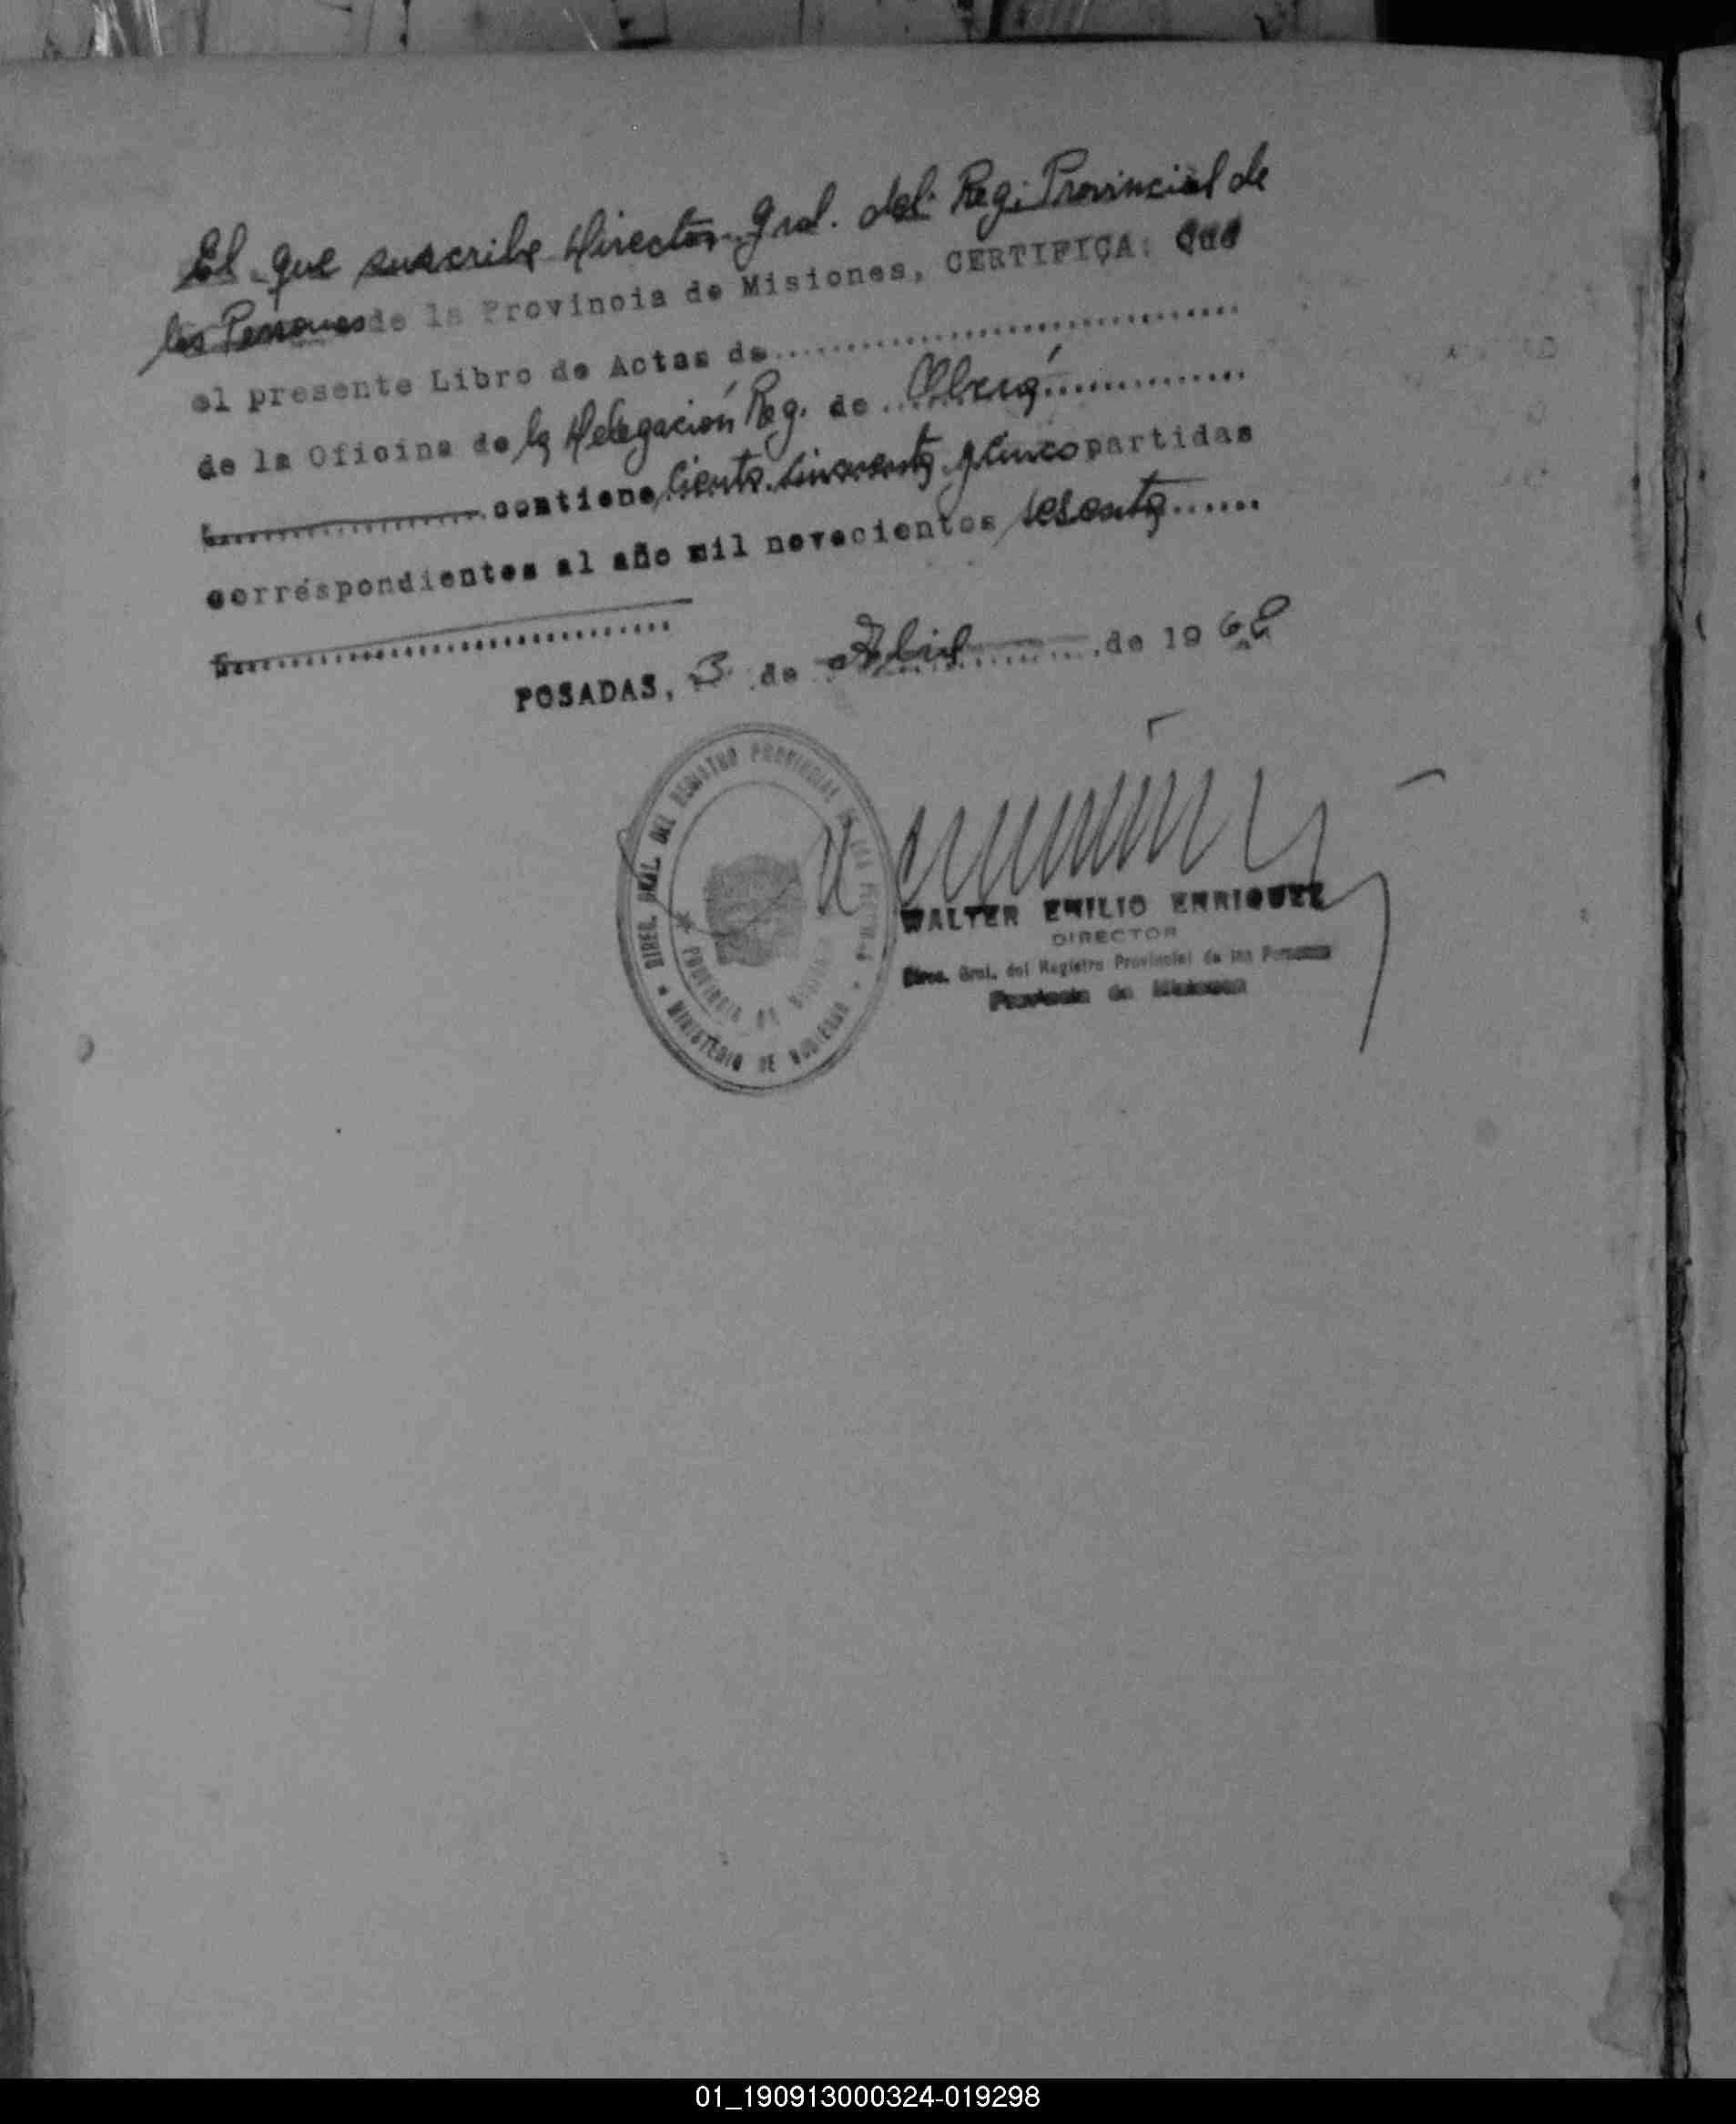 El que suscribe Director Gral. del Reg. Provincial de
las Personas de la Provincia de Misiones, CERTIFICA: que
el presente Libro de Actas de........................................
de la Oficina de la Delegación Reg. de ........Oberá...............
......................contiene ciento cincuenta y cinco partidas
correspondientes al año mil novecientos sesenta......
.................................
POSADAS, 3 de Abril de 1968
DIREC. GRAL. DEL REGISTRO PROVINCIAL DE LAS PERSONAS
PROVINCIA DE MISIONES
* MINISTERIO DE GOBIERNO *
WALTER EMILIO ENRIQUEZ
DIRECTOR
Direc. Gral. del Registro Provincial de las Personas
Provincia de Misiones
01_190913000324-019298